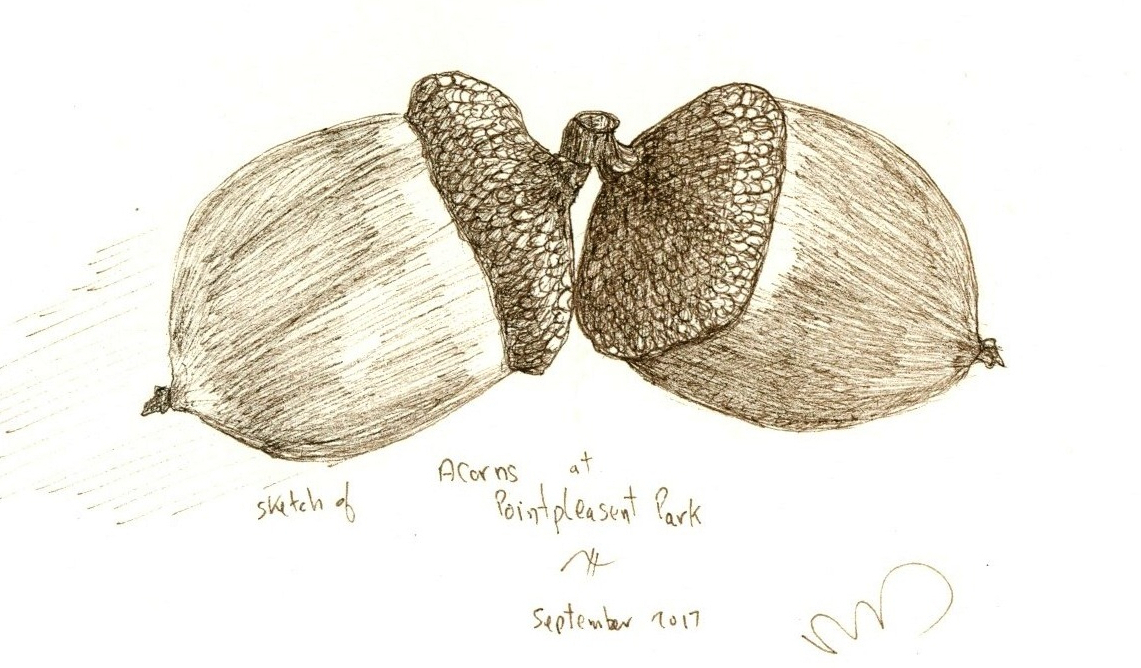 sketch of Acorns at
Pointpleasent Park
September 2017